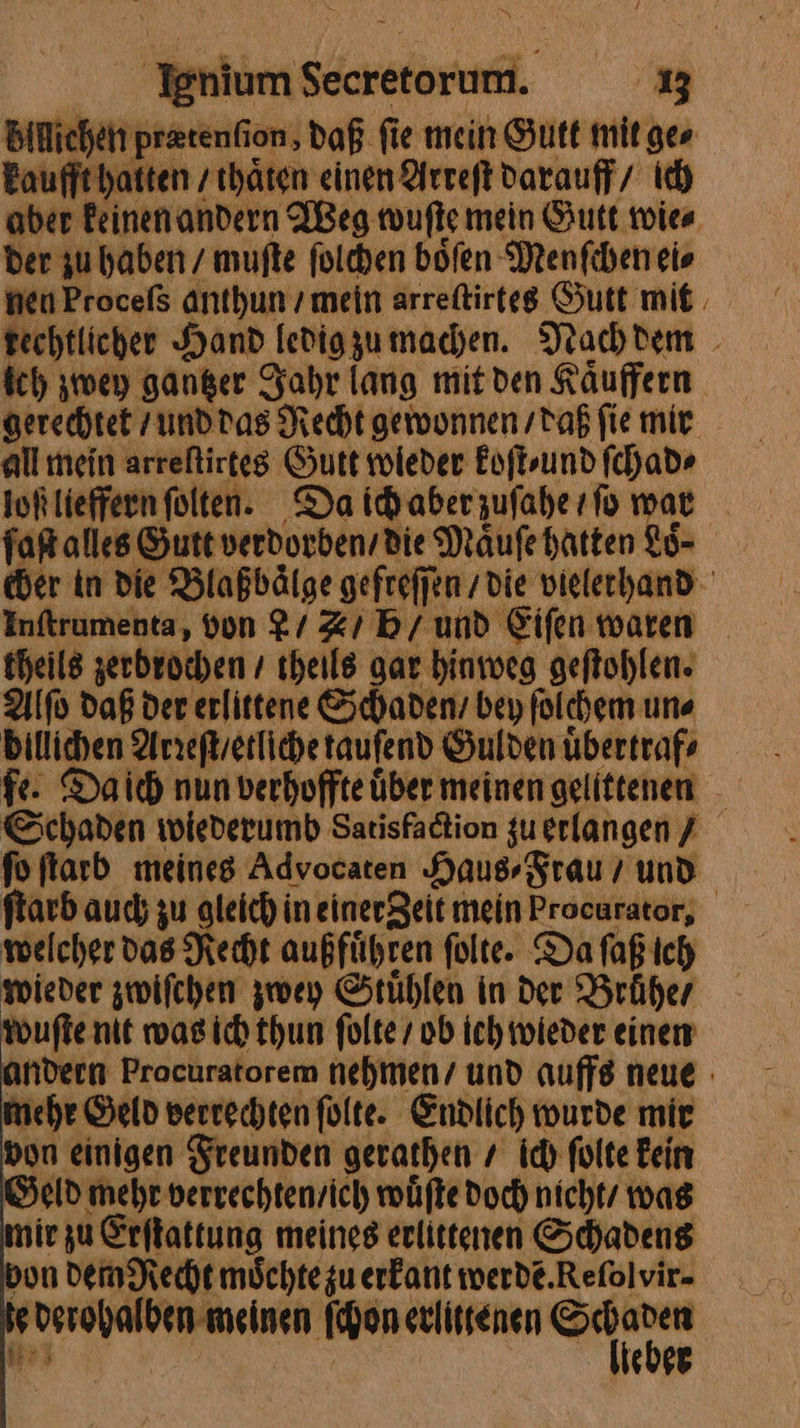 Ignium Secretorum. 13
billichen prætenſion, daß ſie mein Gutt mit ge⸗
kaufft hatten / thaͤten einen Arreſt darauff / ich
aber keinen andern Weg wuſte mein Gutt wie⸗
der zu haben / muſte ſolchen boͤſen Menſchen ei⸗
nen Proceſs anthun / mein arreſtirtes Gutt mit
rechtlicher Hand ledig zu machen. Nach dem
ich zwey gantzer Jahr lang mit den Kaͤuffern
gerechtet / und das Recht gewonnen / daß ſie mir
all mein arreſtirtes Gutt wieder koſt⸗und ſchad⸗
loß lieffern ſolten. Da ich aber zuſahe / ſo war
faſt alles Gutt verdorben / die Maͤuſe hatten Loͤ-
cher in die Blaßbaͤlge gefreſſen / die vielerhand
Inſtrumenta, von ♀ / ♃ / ♄ / und Eiſen waren
theils zerbrochen / theils gar hinweg geſtohlen.
Alſo daß der erlittene Schaden / bey ſolchem un⸗
billichen Arreſt / etliche tauſend Gulden uͤbertraf⸗
fe. Da ich nun verhoffte uͤber meinen gelittenen
Schaden wiederumb Satisfaction zu erlangen /
ſo ſtarb meines Advocaten Haus⸗Frau / und
ſtarb auch zu gleich in einer Zeit mein Procurator,
welcher das Recht außfuͤhren ſolte. Da ſaß ich
wieder zwiſchen zwey Stuͤhlen in der Bruͤhe /
wuſte nit was ich thun ſolte / ob ich wieder einen
andern Procuratorem nehmen / und auffs neue
mehr Geld verrechten ſolte. Endlich wurde mir
von einigen Freunden gerathen / ich ſolte kein
Geld mehr verrechten / ich wuͤſte doch nicht / was
mir zu Erſtattung meines erlittenen Schadens
von dem Recht moͤchte zu erkant werdẽ. Reſolvir-
te derohalben meinen ſchon erlittenen Schaden
lieber